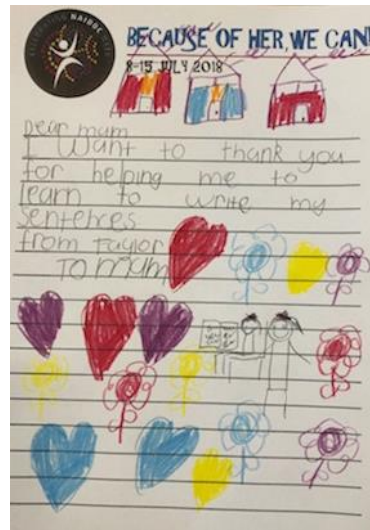 CELEBRATING NAIDOC
BECAUSE OF HER, WE CAN!
8-15 JULY 2018
Dear mum
I want to thank you
for helping me to
learn to write my
sentences
from Taylor
TO mum